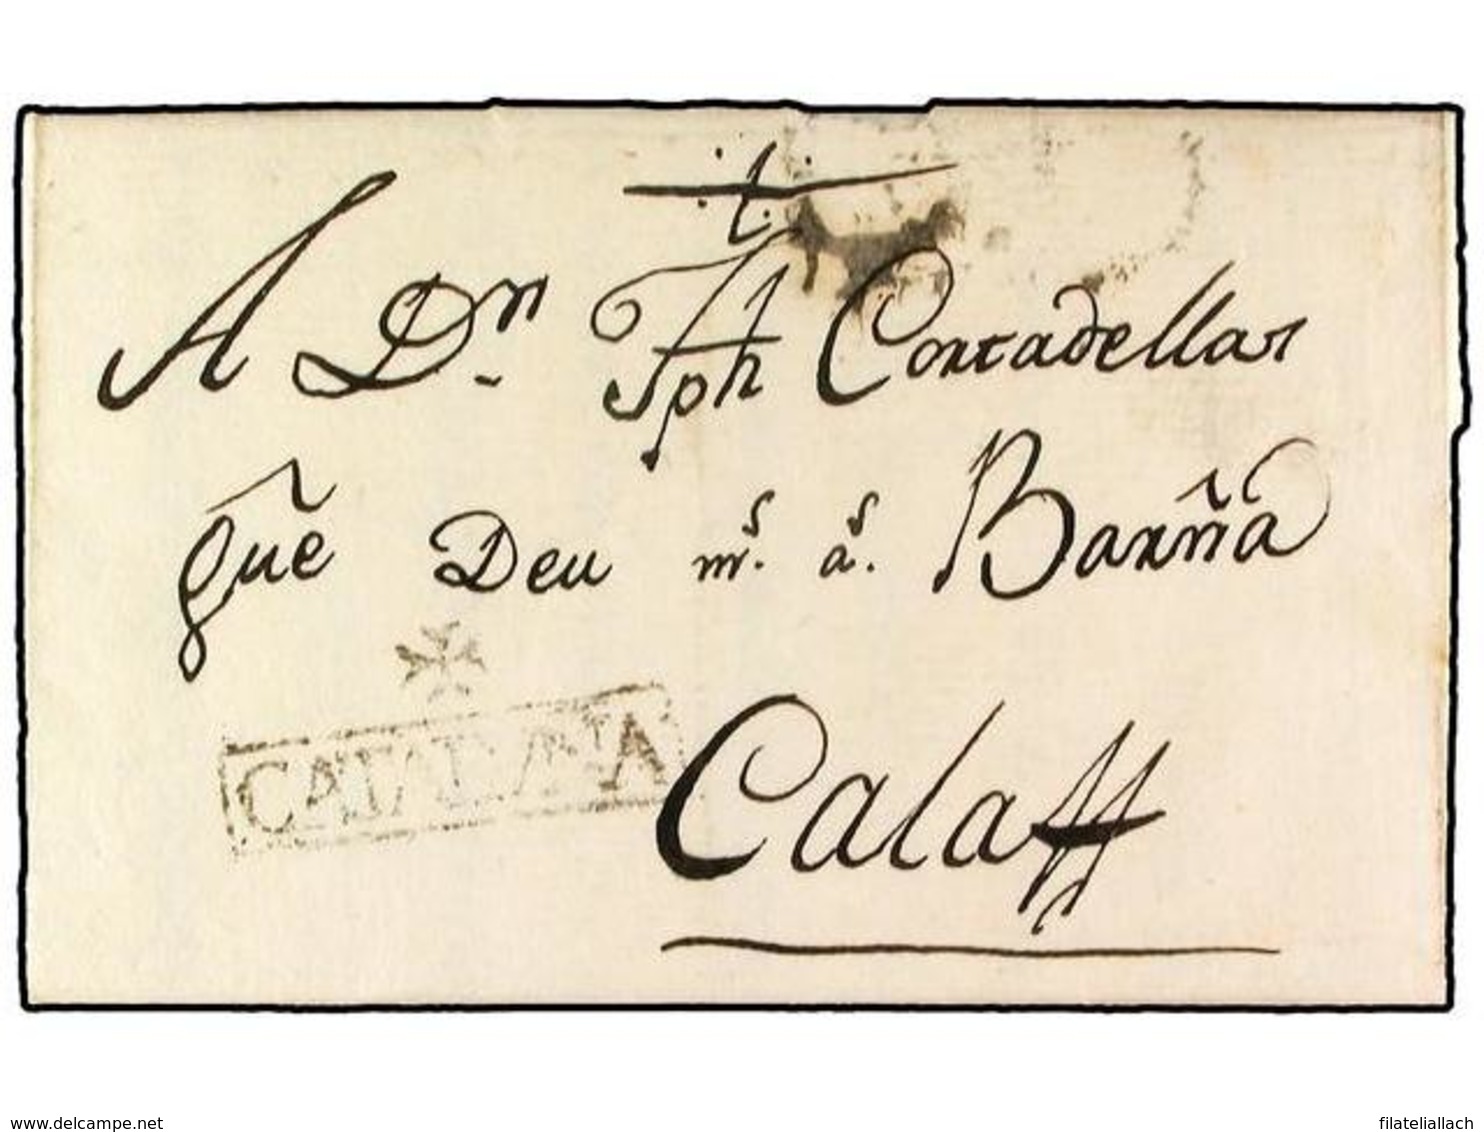 A Dn. Jph Cortadellas
que Deu ms. as. Barña
CATALUÑA
Calaff
www.delcampe.net
filateliallach